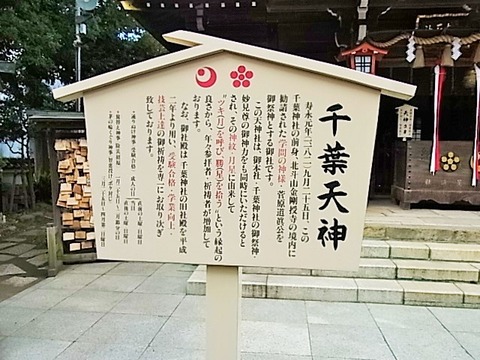 千葉天神
寿永元年(一一八二)九月二十五日、この
千葉神社の前身・北斗山金剛授寺の境内に
勧請された「学問の神様」菅原道真公を
御祭神とする御社です。
この天神様は、御本社・千葉神社の御祭神・
妙見尊の御神力をも同時にいただけると
され、その神紋・月星に由来して
“ツキ(月)を呼び、勝(星)を拾う”という縁起の
良さから、年々参拝者・祈祷者が増加して
おります。
なお、御社殿は千葉神社の旧社殿を平成
二年より用い、受験合格・学業向上・
技芸上達の御祈祷を専らにお取り次ぎ
致しております。